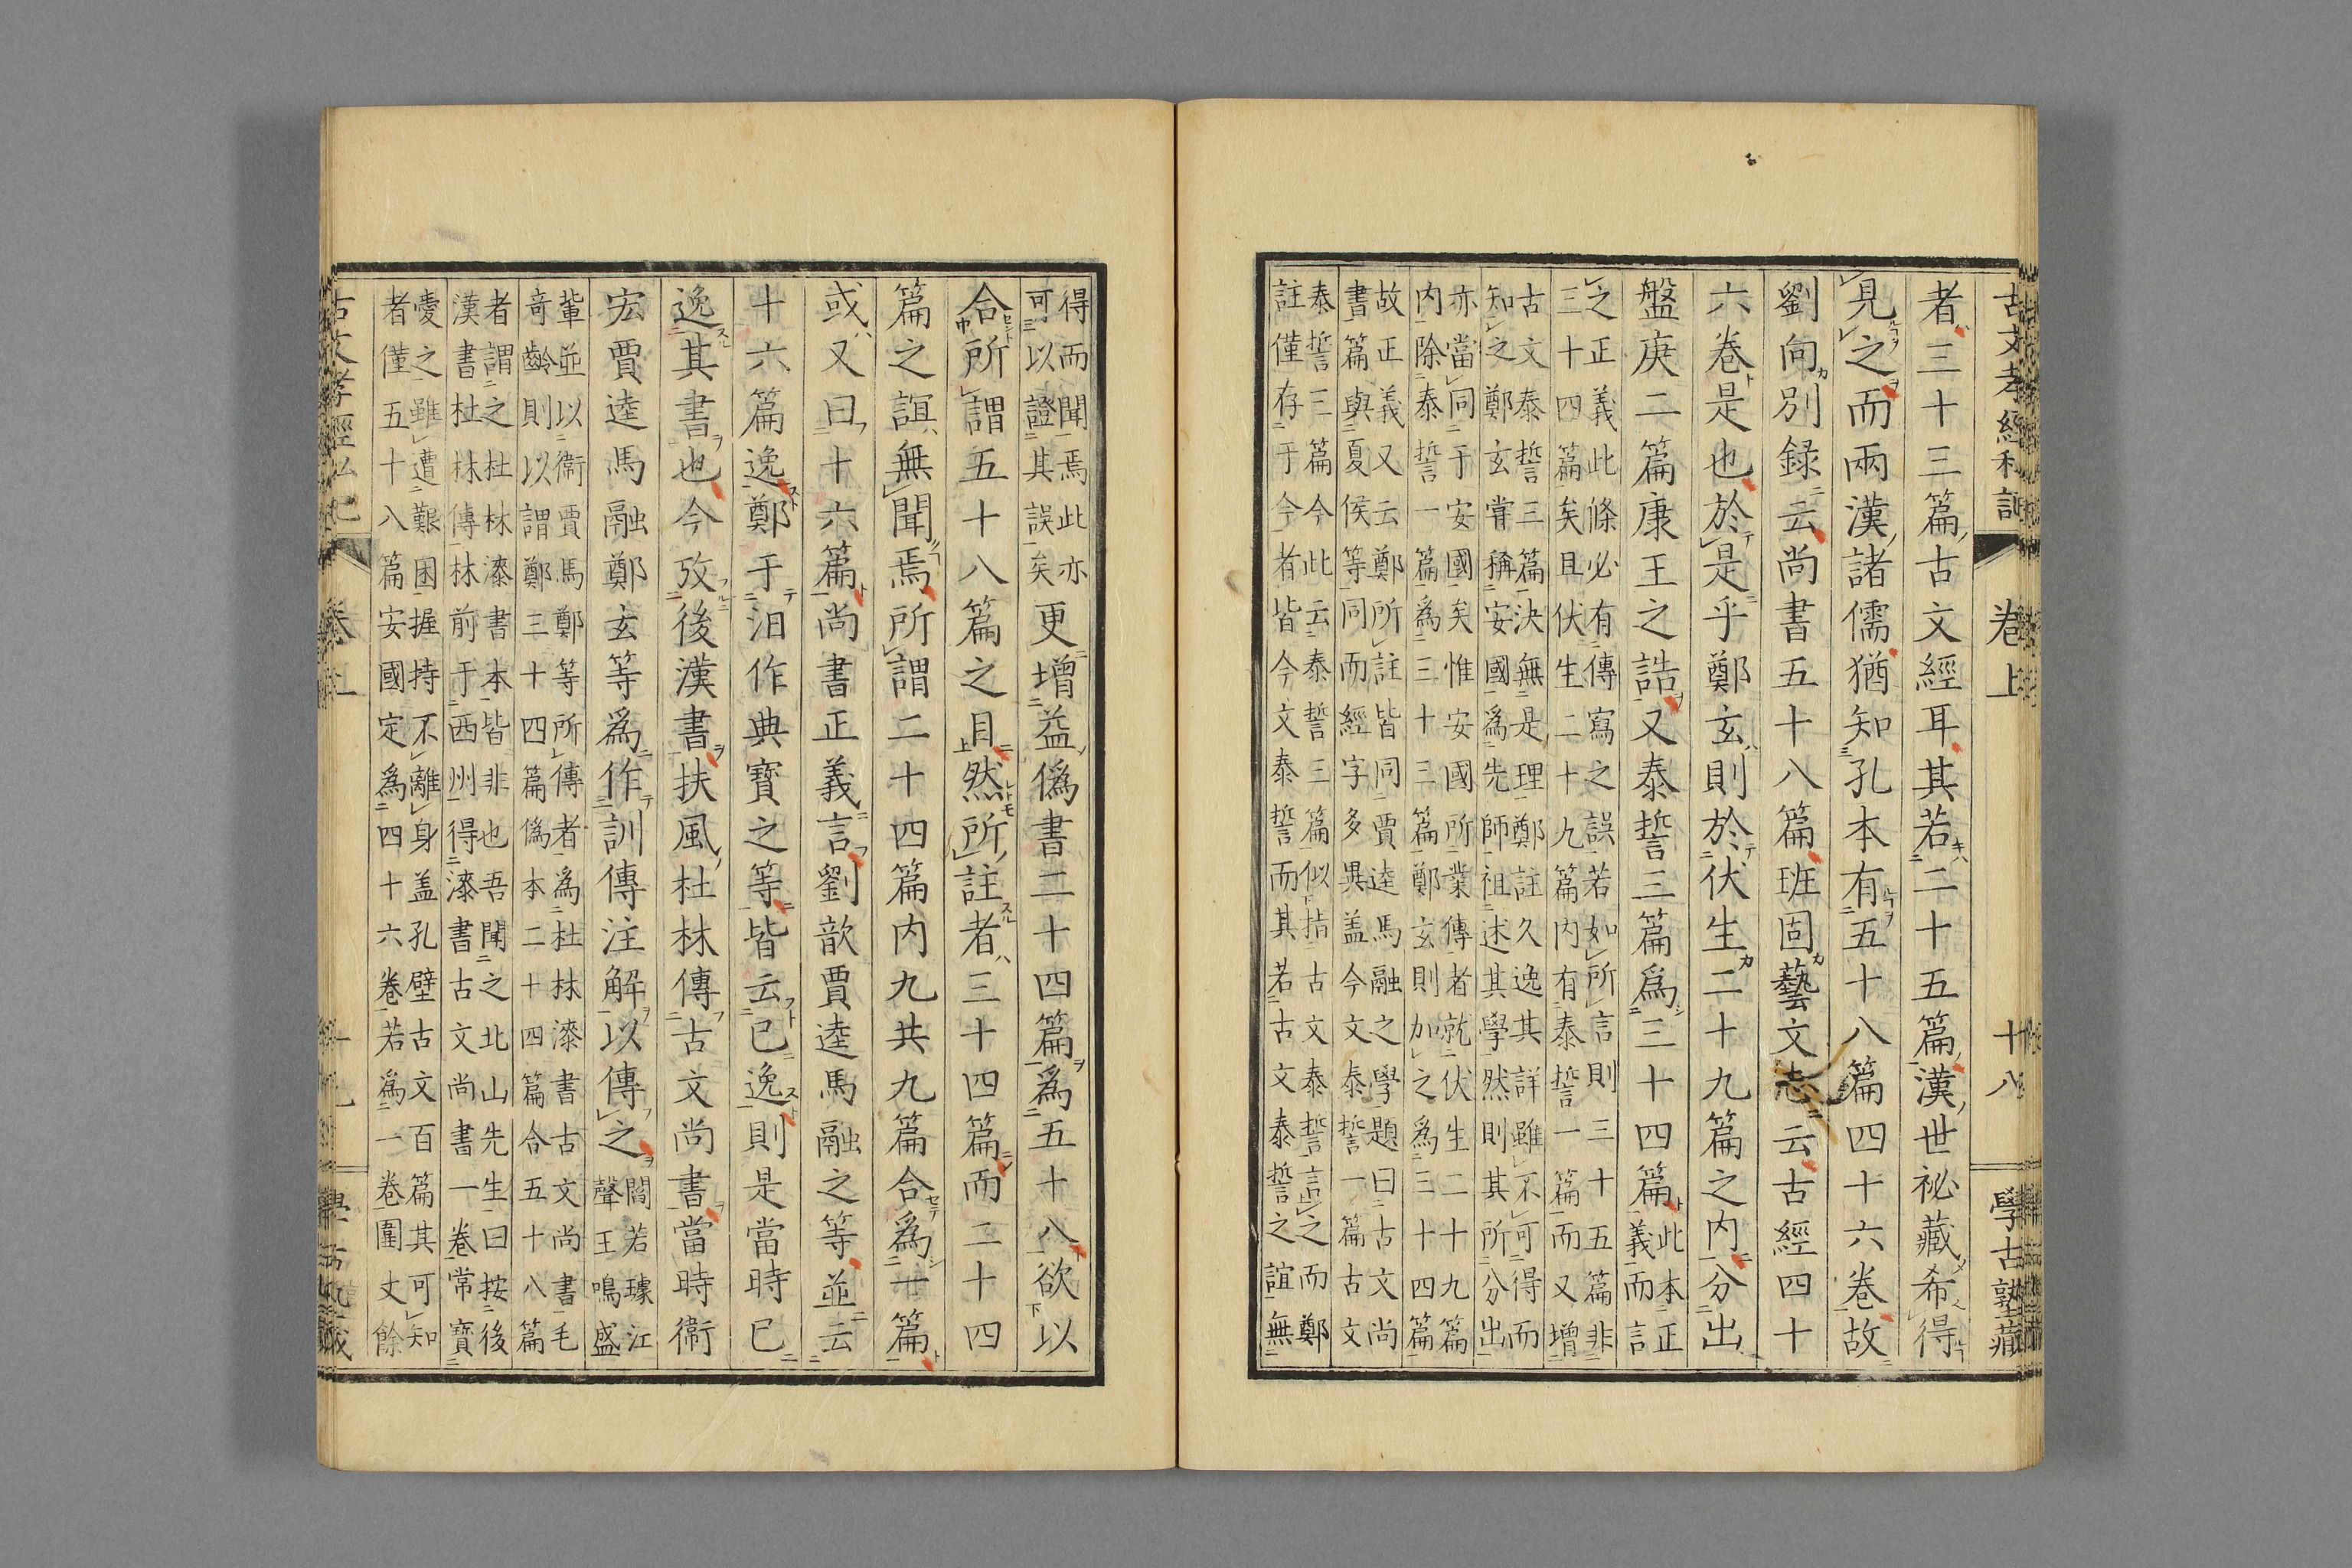 古文孝經私記 卷上 十八 學古塾藏
者三十三篇古文經耳其若二十五篇漢世祕藏希得
見之而兩漢諸儒猶知孔本有五十八篇四十六卷故
劉向別録云尚書五十八篇班固藝文志云古經四十
六卷是也於是乎鄭玄則於伏生二十九篇之内分出
盤庚二篇康王之誥又泰誓三篇爲三十四篇此本正
義而言
之正義此條必有傳寫之誤若如所言則三十五篇非
三十四篇矣且伏生二十九篇内有泰誓一篇而又増
古文泰誓三篇決無是理鄭註久逸其詳雖不可得而
知之鄭玄甞稱安國爲先師祖述其學然則其所分出
亦當同于安國矣惟安國所業傳者就伏生二十九篇
内除泰誓一篇爲三十三篇鄭玄則加之爲三十四篇
故正義又云鄭所註皆同賈逵馬融之學題曰古文尚
書篇與夏侯等同而經字多異盖今文泰誓一篇古文
泰誓三篇今此云泰誓三篇似指古文泰誓言之而鄭
註僅存于今者皆今文泰誓而其若古文泰誓之誼無
得而聞焉此亦
可以證其誤矣更増益僞書二十四篇爲五十八欲以
合所謂五十八篇之目然所註者三十四篇而二十四
篇之誼無聞焉所謂二十四篇内九共九篇合爲一篇
或又曰十六篇尚書正義言劉歆賈逵馬融之等並云
十六篇逸鄭于汨作典寳之等皆云已逸則是當時已
逸其書也今攷後漢書扶風杜林傳古文尚書當時衛
宏賈逵馬融鄭玄等爲作訓傳注解以傳之閻若璩江
聲王鳴盛
輩並以衛賈馬鄭等所傳者爲杜林漆書古文尚書毛
竒齡則以謂鄭三十四篇僞本二十四篇合五十八篇
者謂之杜林漆書本皆非也吾聞之北山先生曰按後
漢書杜林傳林前于西州得漆書古文尚書一卷常寳
愛之雖遭艱困握持不離身盖孔壁古文百篇其可知
者僅五十八篇安國定爲四十六卷若爲一卷圍丈餘
古文孝經私記 卷上